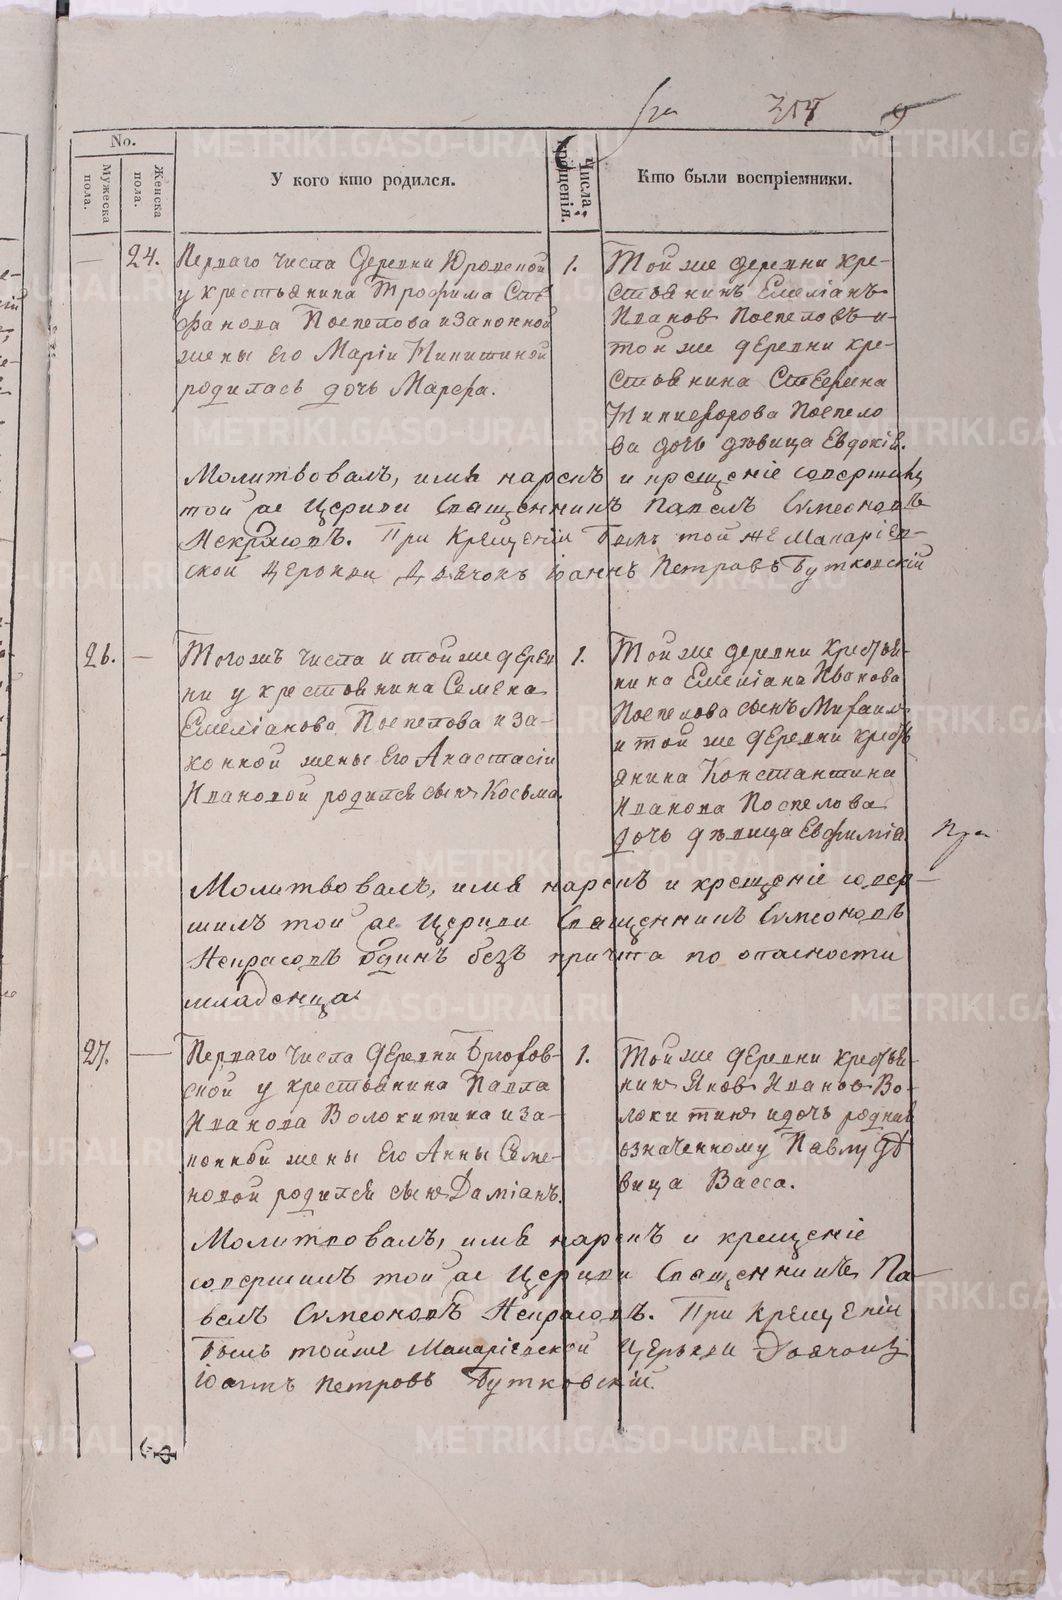 354 9
No.
Мужеска пола.
Женска пола.
У кого кто родился.
Числа крещенія.
Кто были воспріемники.
24.
Перваго числа деревни Юровской
у крестьянина Трофима Сте
фанова Поспелова и законной
жены его Маріи Никитиной
родилась дочь Марѳа.
1.
Той же деревни кре-
стьянинъ Емеліанъ
Иванов Поспеловъ и
той же деревни кре-
стьянина Стефана
Никифорова Поспело
ва дочь дѣвица Евдокія.
Молитвовалъ, имя нарекъ и крещеніе совершилъ
той же Церкви Священникъ Павелъ Сѵмеоновъ
Некрасовъ. При Крещеніи былъ той же Макаріев-
ской Церкви Дьячокъ Іоаннъ Петровъ Бутковскій
26.
Тогожъ числа и той же дерев
ни у крестьянина Семена
Емеліанова Поспелова и за-
конной жены его Анастасіи
Ивановой родился сынъ Косьма.
1.
Той же деревни Крестья-
нина Емеліана Иванова
Поспелова сынъ Михаилъ
и той же деревни кресть
янина Константина
Иванова Поспелова
дочь дѣвица Евфимія.
Молитвовалъ, имя нарекъ и крещеніе совер-
шилъ той же Церкви Священникъ Сѵмеоновъ
Некрасовъ одинъ безъ причта по опасности
младенца.
27.
Перваго числа деревни Брюхов-
ской у крестьянина Павла
Иванова Волокитина и за-
конной жены его Анны Семе-
новой родился сынъ Даміанъ.
1.
Той же деревни крестья-
нинъ Яковъ Ивановъ Во-
локитинъ и дочь родная
означенному Павлу дѣ
вица Васса.
Молитвовалъ, имя нарекъ и крещеніе
совершилъ той же Церкви Священникъ Па-
велъ Сѵмеоновъ Некрасовъ. При Крещеніи
былъ той же Макаріевской Церкви Дьячокъ
Іоаннъ Петровъ Бутковскій.
METRIKI.GASO-URAL.RU